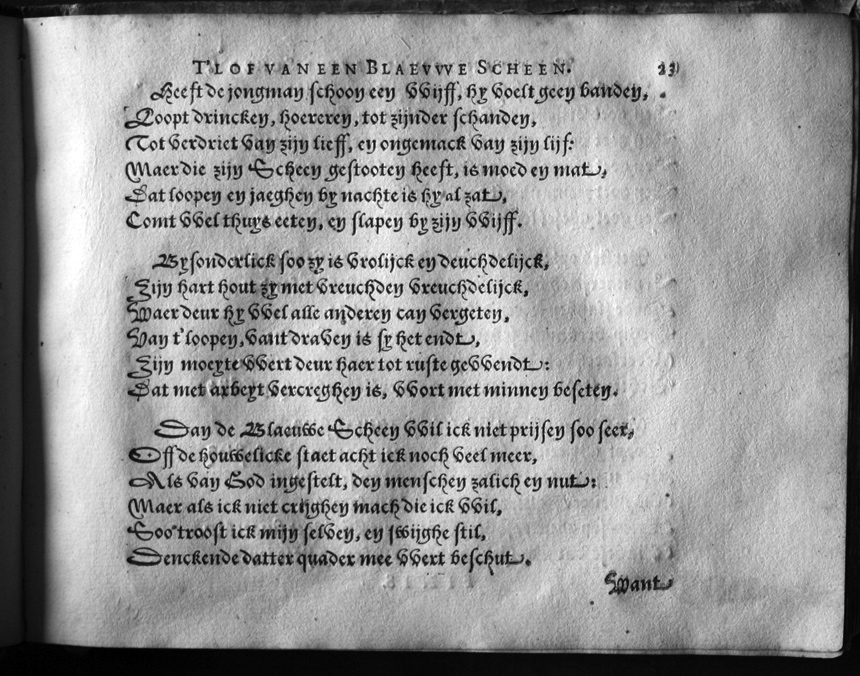 T'LOF VAN EEN BLAEVWE SCHEEN. 23
Heeft de jongman schoon een Wijff, hy voelt geen banden,
Loopt drincken, hoereren, tot zijnder schanden,
Tot verdriet van zijn lieff, en ongemack van zijn lijf:
Maer die zijn Scheen gestooten heeft, is moed en mat,
Dat loopen en jaeghen by nachte is hy al zat,
Comt wel thuys eeten, en slapen by zijn Wijff.
Bysonderlick soo zy is vrolijck en deuchdelijck,
Zijn hart hout zy met vreuchden vreuchdelijck,
Waer deur hy wel alle anderen can vergeten,
Van t'loopen, vant draven is sy het endt,
Zijn moeyte wert deur haer tot ruste gewendt:
Dat met arbeyt vercreghen is, wort met minnen beseten.
Dan de Blaeuwe Scheen wil ick niet prijsen soo seer,
Off de houwelicke staet acht ick noch veel meer,
Als van God ingestelt, den menschen zalich en nut:
Maer als ick niet crijghen mach die ick wil,
Soo troost ick mijn selven, en swijghe stil,
Denckende datter quader mee wert beschut.
Want